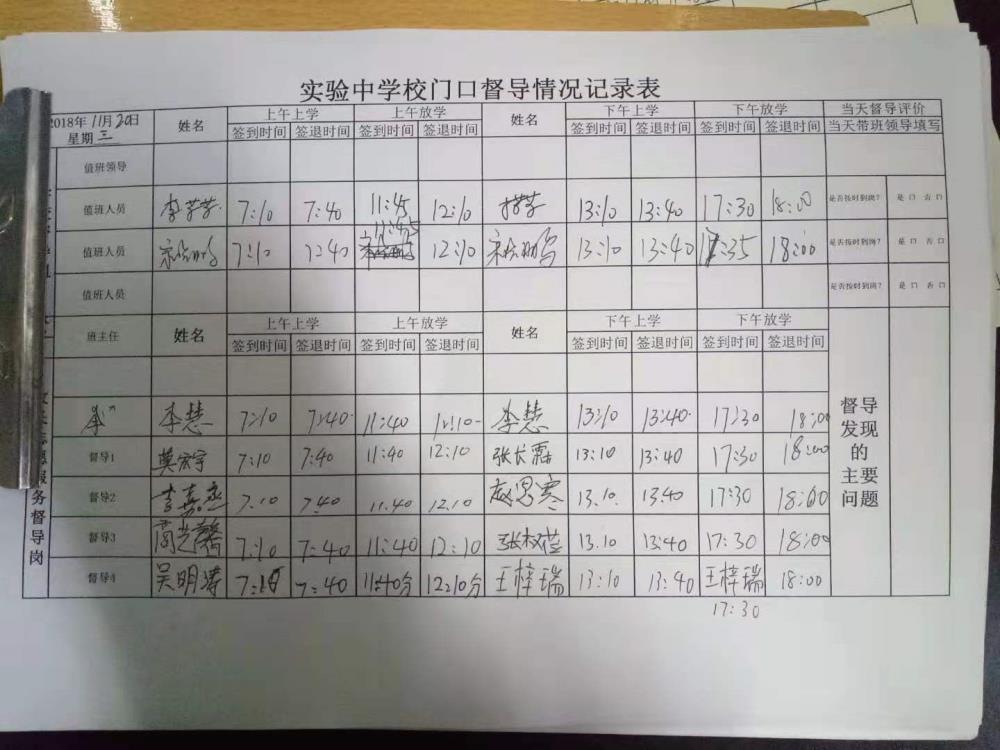 实验中学校门口督导情况记录表
2018年11月20日 星期三 姓名 上午上学 上午放学 姓名 下午上学 下午放学 当天督导评价
签到时间 签退时间 签到时间 签退时间 签到时间 签退时间 签到时间 签退时间 当天带班领导填写
值班领导
值班人员 7:10 7:40 11:45 12:10 13:10 13:40 17:30 18:00 是否按时到岗? 是口 否口
11:45
值班人员 7:10 7:40 12:10 13:10 13:40 17:35 18:00 是否按时到岗? 是口 否口
值班人员 是否按时到岗? 是口 否口
班主任 姓名 上午上学 上午放学 姓名 下午上学 下午放学
签到时间 签退时间 签到时间 签退时间 签到时间 签退时间 签到时间 签退时间
李慧 7:10 7:40 11:40 12:10 李慧 13:10 13:40 17:30 18:00
督导1 莫宏宇 7:10 7:40 11:40 12:10 张长霖 13:10 13:40 17:30 18:00
督导2 吉嘉丞 7.10 7.40 11.40 12.10 赵思寒 13.10 13:40 17:30 18:00
督导3 7:10 7:40 11:40 12:10 13.10 13:40 17:30 18:00
督导4 吴明涛 7:10 7:40 11:40分 12:10分 王梓瑞 13:10 13:40 王梓瑞 18:00
17:30
督导
发现
的
主要
问题
服务督导岗